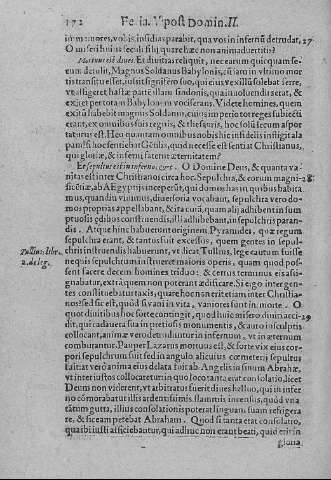 172 Fe. ia. V. post Domin. II.
immemores, vobis insidias parabit, qua vos in infernũ detrudat, 27
O miseri huius seculi filij quare hæc non animadvertitis?
Mortuus est dives. Et divitias reliquit, nec earum quicquam se-
cum detulit, Magnus Soldanus Babylonis, cũ iam in ultimo mor
tis transitu esset, indusium afferri fecit, quo eius vexillũ solebat ferre,
ut affigeret hastæ parte illam sindonis, qua involuendus erat, &
exiret per totam Babylonem vociferans. Videte homines, quem
exitũ habebit magnus Soldanus, cuius imperio tot reges subiecti
erant, ex omnibus suis regnis, & thesauris, hoc solũ secum aspor
taturus est. Heu quantum omnibus nobis hic infidelis instigat
fecisse est sentiat Christianus,
qui gloriæ, & inferni sit æternitatem?
Et sepultus est in inferno, &c. O Domine Deus, & quanta va-
nitas est inter Christianos circa hoc. Sepulchra, & eorum magni- 28
ficẽtiæ, ab Ægyptijs inceperũt, qui domos has in quibus habita
mus, quandiu vivimus, diversoria vocabant, sepulchra vero do-
mos proprias appellabant, & ita curã, quam alij adhibent in sum
ptuosis ędibus construendis, illi adhibebant, in sepulchris paran-
dis. Atque hinc habuerunt originem Pyramides, quæ regum
sepulchra erant, & tantus fuit excessus, quem gentes in sepul-
chris instruendis habuerunt, ut dicat Tullius, lege cautum fuisse
ne quis sepulchrum instrueret maioris operis, quam quod pos-
sent facere decem homines triduo: & certus terminus eis assi-
gnabatur, extra quem non poterant ædificare. Si ergo inter gen-
tes constituebatur taxis, quare hoc non erit etiam inter Christia-
nos? sed sic est, quod si vani in vita, vaniores sunt in morte. O
quot divitibus hoc forte contingit, quod huic misero divini acci- 29
dit, qui cadavera sua in pretiosis monumentis, & auro insculptis
collocant, animæ vero detruduntur in infernum, ut in æternum
comburantur. Pauper Lazarus mortuus est, & forte vix eius cor-
pori sepulchrum fuit sed in angulo alicuius cœmeterij sepultus
fuit at vero anima eius delata fuit ab Angelis in sinum Abrahæ,
ut inter iustos collocaretur in quo loco tanta erat consolatio, licet
Deum non viderent, ut arbitratus fuerit dives helluo, qui in infer
no cõmorabatur illis ardentissimis flammis inter eos, quod una
tãtum gutta, illius consolationis poterat linguam suam refrigera
re, & sic eam petebat Abraham. Quod si tanta erat consolatio,
quasi iusti afficiebantur, qui adhuc non erant beati, quid erit in
gloria
Tullius. libr.
2. de leg.